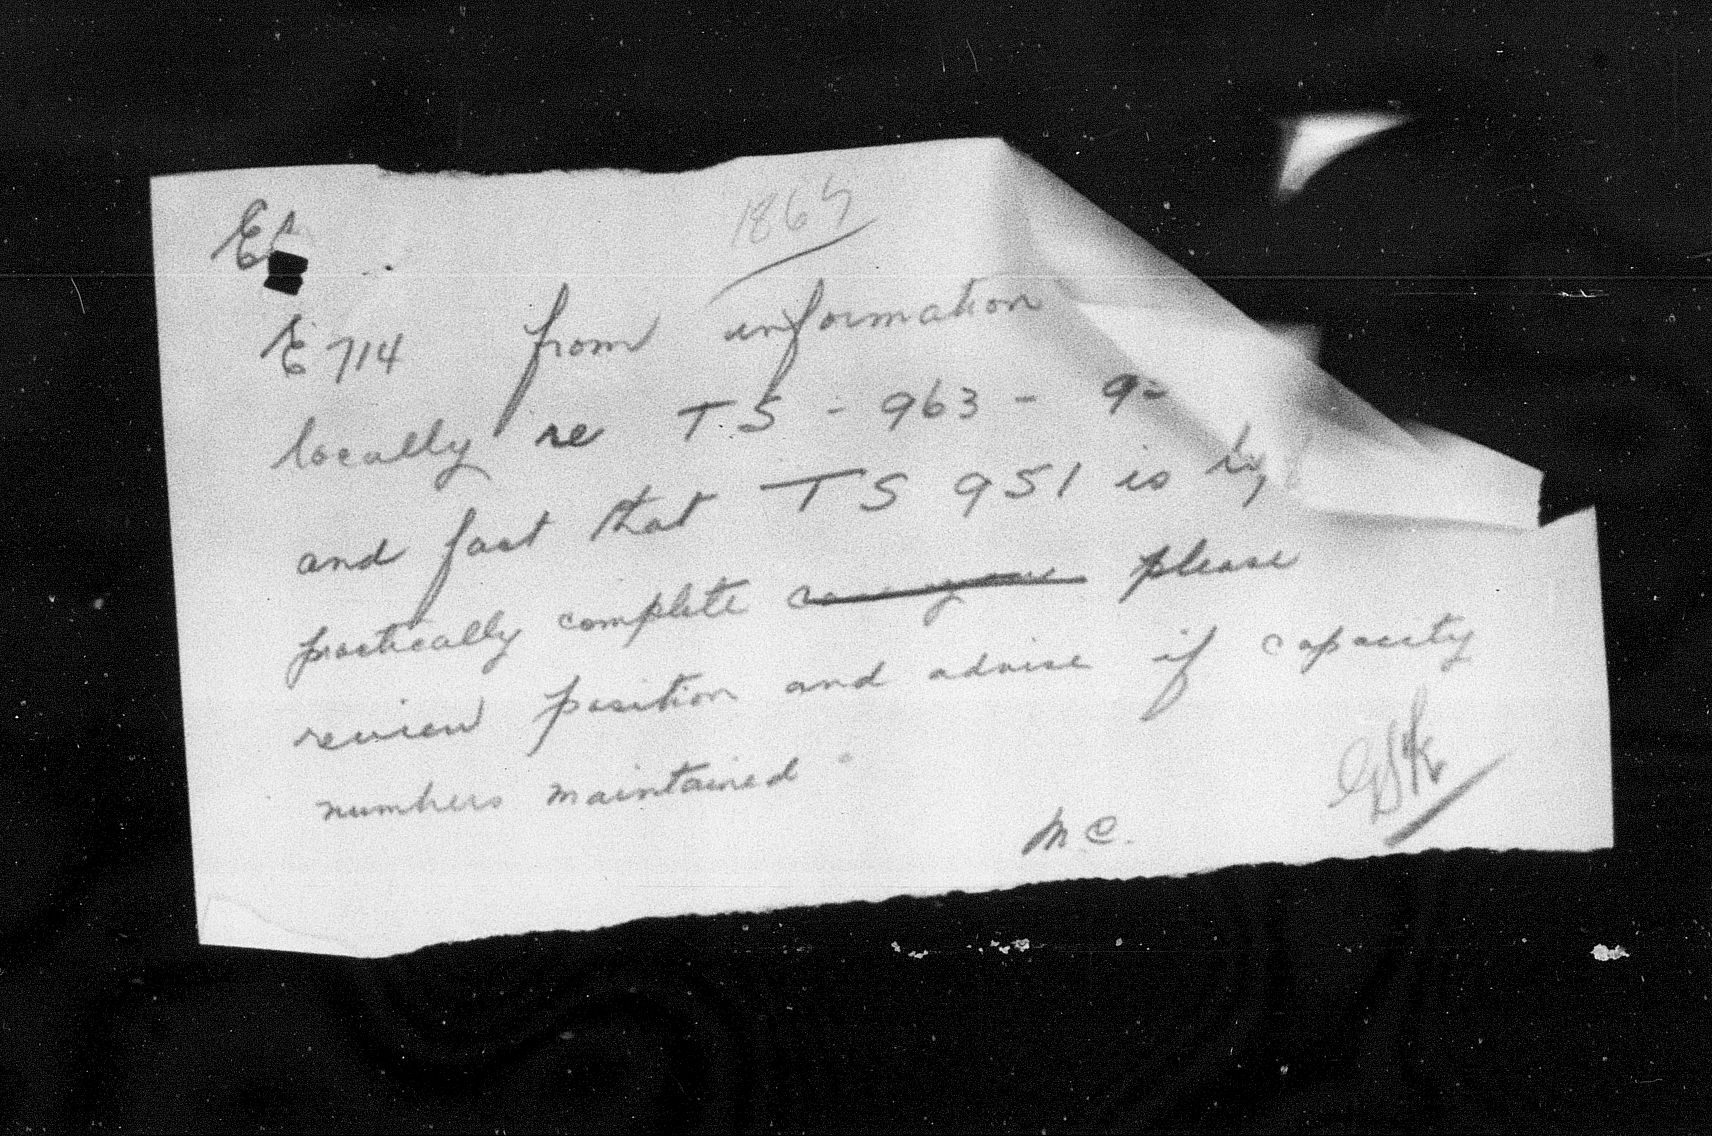 1864
E 714 from information
locally re TS - 963 - 9
and fact that TS 951 is
practically complete please
review position and advise if capacity
numbers maintained
M.C.